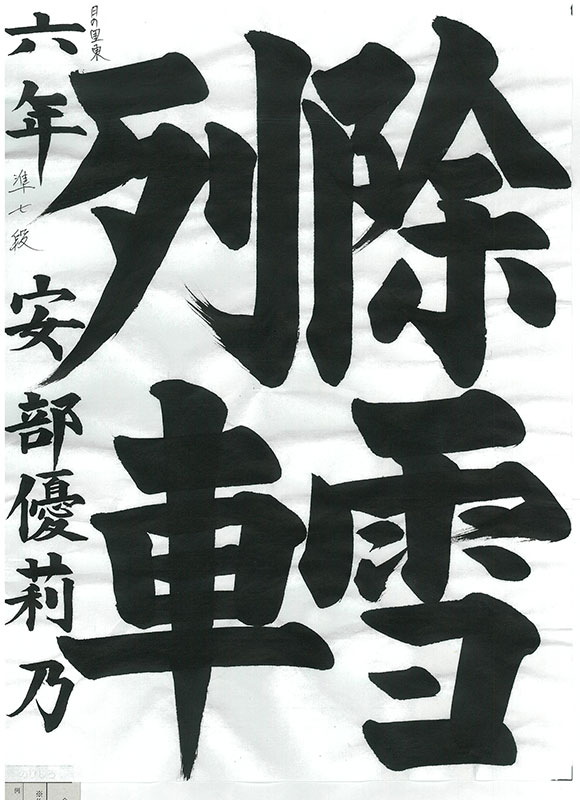 除雪
列車
日の里東
六年 準七段 安部優莉乃